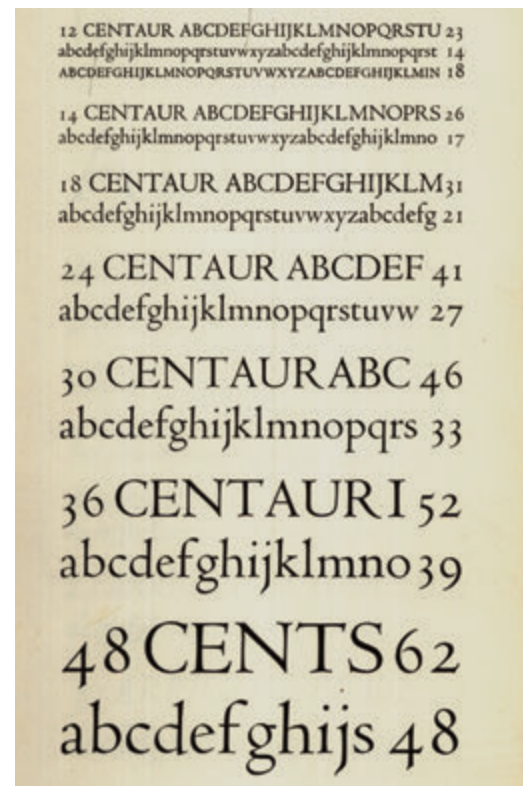 12 CENTAUR ABCDEFGHIJKLMNOPQRSTU 23
abcdefghijklmnopqrstuvwxyzabcdefghijklmnopqrst 14
ABCDEFGHIJKLMNOPQRSTUVWXYZABCDEFGHIJKLMIN 18
14 CENTAUR ABCDEFGHIJKLMNOPRS 26
abcdefghijklmnopqrstuvwxyzabcdefghijklmno 17
18 CENTAUR ABCDEFGHIJKLM 31
abcdefghijklmnopqrstuvwxyzabcdefg 21
24 CENTAUR ABCDEF 41
abcdefghijklmnopqrstuvw 27
30 CENTAUR ABC 46
abcdefghijklmnopqrs 33
36 CENTAUR I 52
abcdefghijklmno 39
48 CENTS 62
abcdefghijs 48